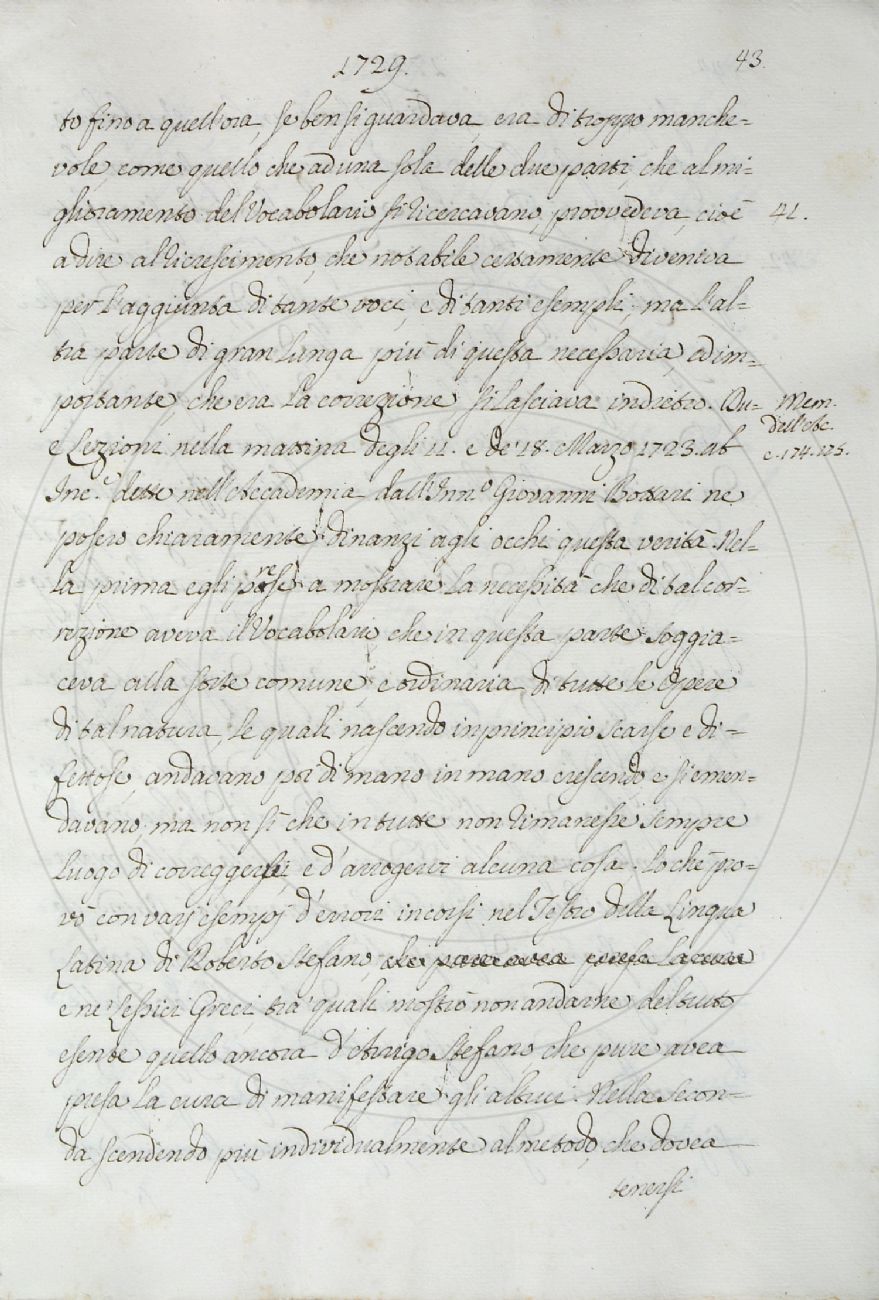 1729.
43.
to fino a quell'ora, se ben si guardava, era di troppo manche=
vole, come quello che ad una sola delle due parti, che al mi=
glioramento del Vocabolario si ricercavano, provvedeva, cioè
41.
a dire al ricrescimento, che notabile certamente diveniva
per l'aggiunta di tante voci, e di tanti esempli; ma l'al=
tra parte di gran lunga più di questa necessaria, ed im=
portante, che era la correzione si lasciava indietro. Du=
Mem.
dell'Acc.
c. 174. 175.
e Lezioni nella mattina degli 11. e de' 18. Marzo 1723. ab
Inc.e dette nell'Accademia dall'Inn.o Giovanni Bottari ne
posero chiaramente dinanzi agli occhi questa verità. Nel=
la prima egli prese a mostrare la necessità che di tal cor=
rezione aveva il Vocabolario che in questa parte soggia=
ceva alla sorte comune, e ordinaria di tutte le Opere
di tal natura, le quali nascendo in principio scarse e di=
fettose, andavano poi di mano in mano crescendo e si emen=
davano; ma non sì che in tutte non rimanesse sempre
luogo di correggersi, e d'arrogervi alcuna cosa. Lo che pro=
vò con varj esempj d'errori incorsi nel Tesoro della Lingua
Latina di Roberto Stefano, che pure avea presa la cura
e ne' Lessici Greci, tra' quali mostrò non andarne del tutto
esente quello ancora d'Arrigo Stefano, che pure avea
presa la cura di manifestare gli altrui. Nella Secon=
da scendendo più individualmente al metodo, che dovea
tenersi